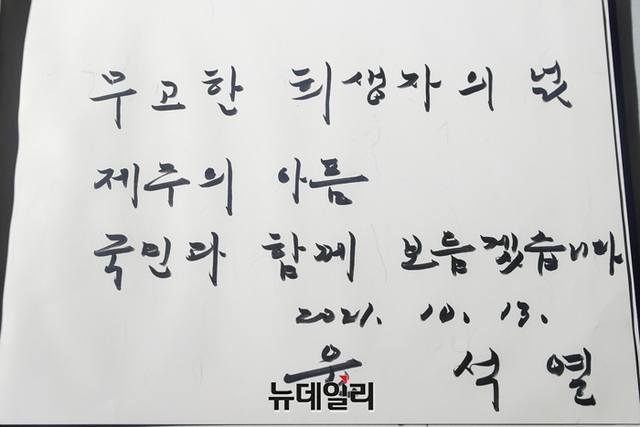 무고한 희생자의 넋
제주의 아픔
국민과 함께 보듬겠습니다
2021. 10. 13.
윤 석 열
뉴데일리